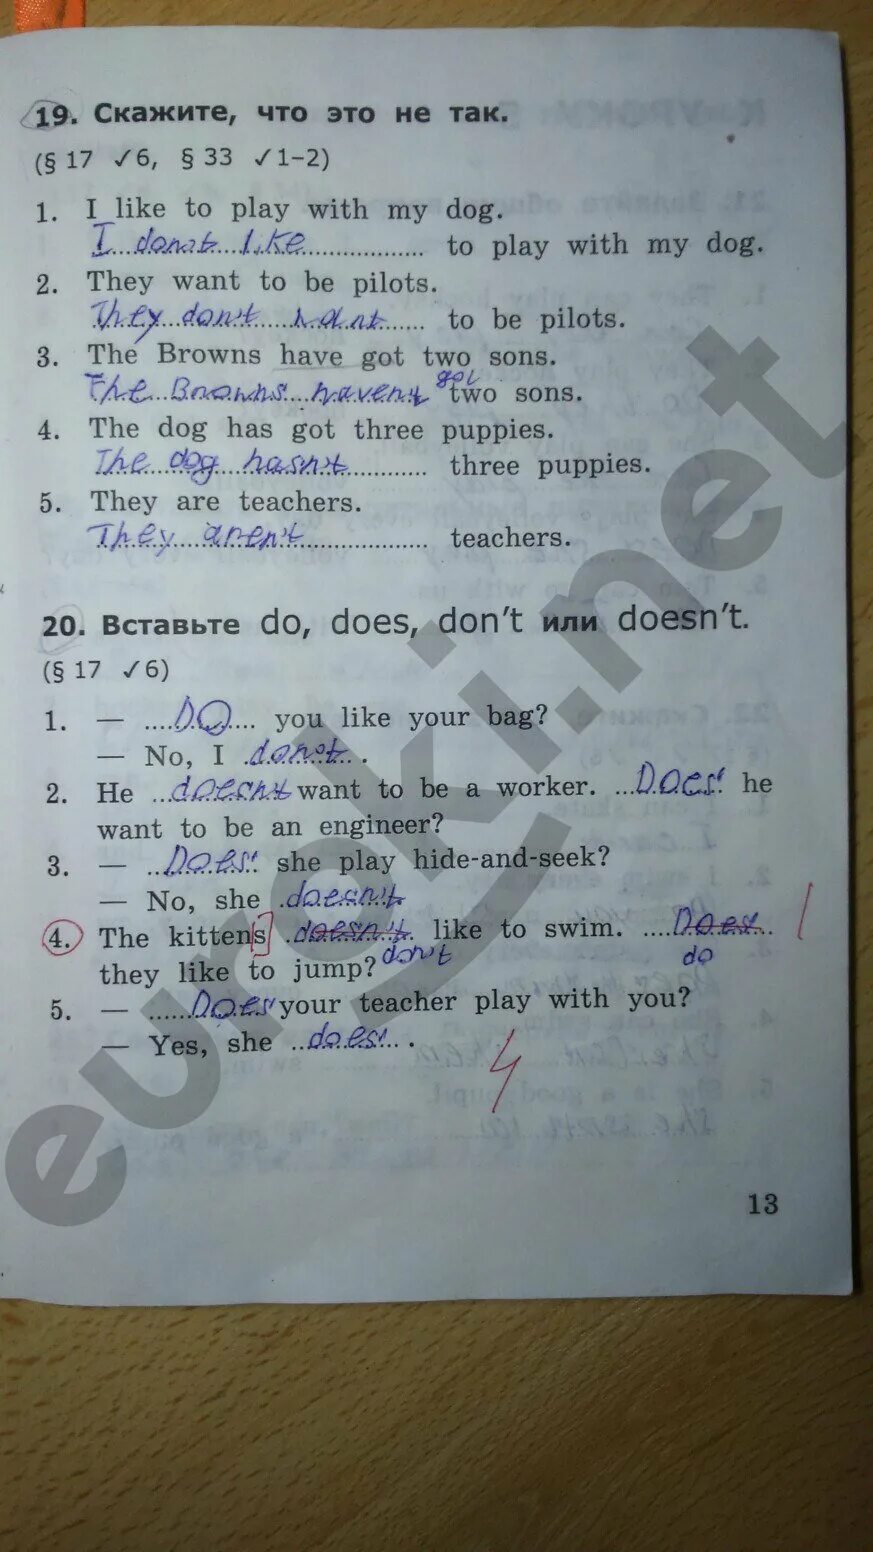 19. Скажите, что это не так.
(§ 17 ✓6, § 33 ✓1–2)
1. I like to play with my dog.
I don't like to play with my dog.
2. They want to be pilots.
They don't want to be pilots.
3. The Browns have got two sons.
The Browns haven't got two sons.
4. The dog has got three puppies.
The dog hasn't three puppies.
5. They are teachers.
They aren't teachers.
20. Вставьте do, does, don't или doesn't.
(§ 17 ✓6)
1. — Do you like your bag?
— No, I don't.
2. He doesn't want to be a worker. Does he
want to be an engineer?
3. — Does she play hide-and-seek?
— No, she doesn't
4. The kittens doesn't like to swim. Does
don't do
they like to jump?
5. — Does your teacher play with you?
— Yes, she does.
4
13
euroki.net